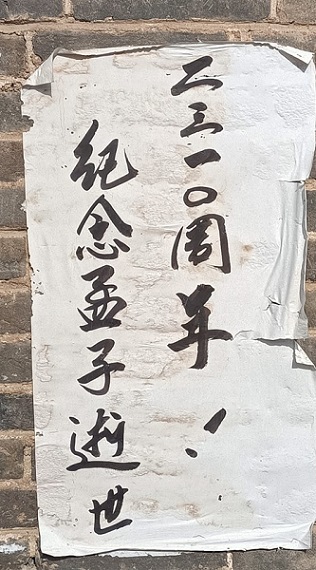 纪念孟子逝世
二三一〇周年！